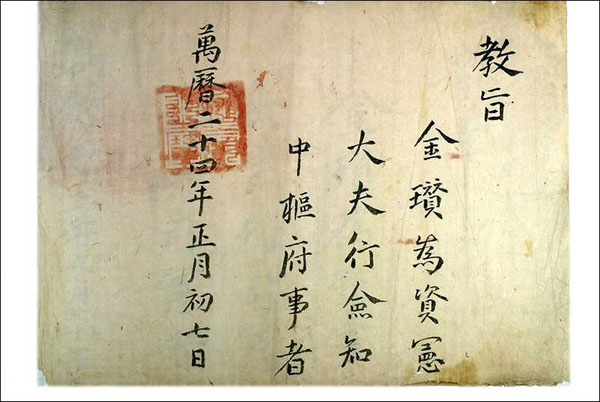 教旨
金瓚為資憲
大夫行僉知
中樞府事者
萬曆二十四年正月初七日